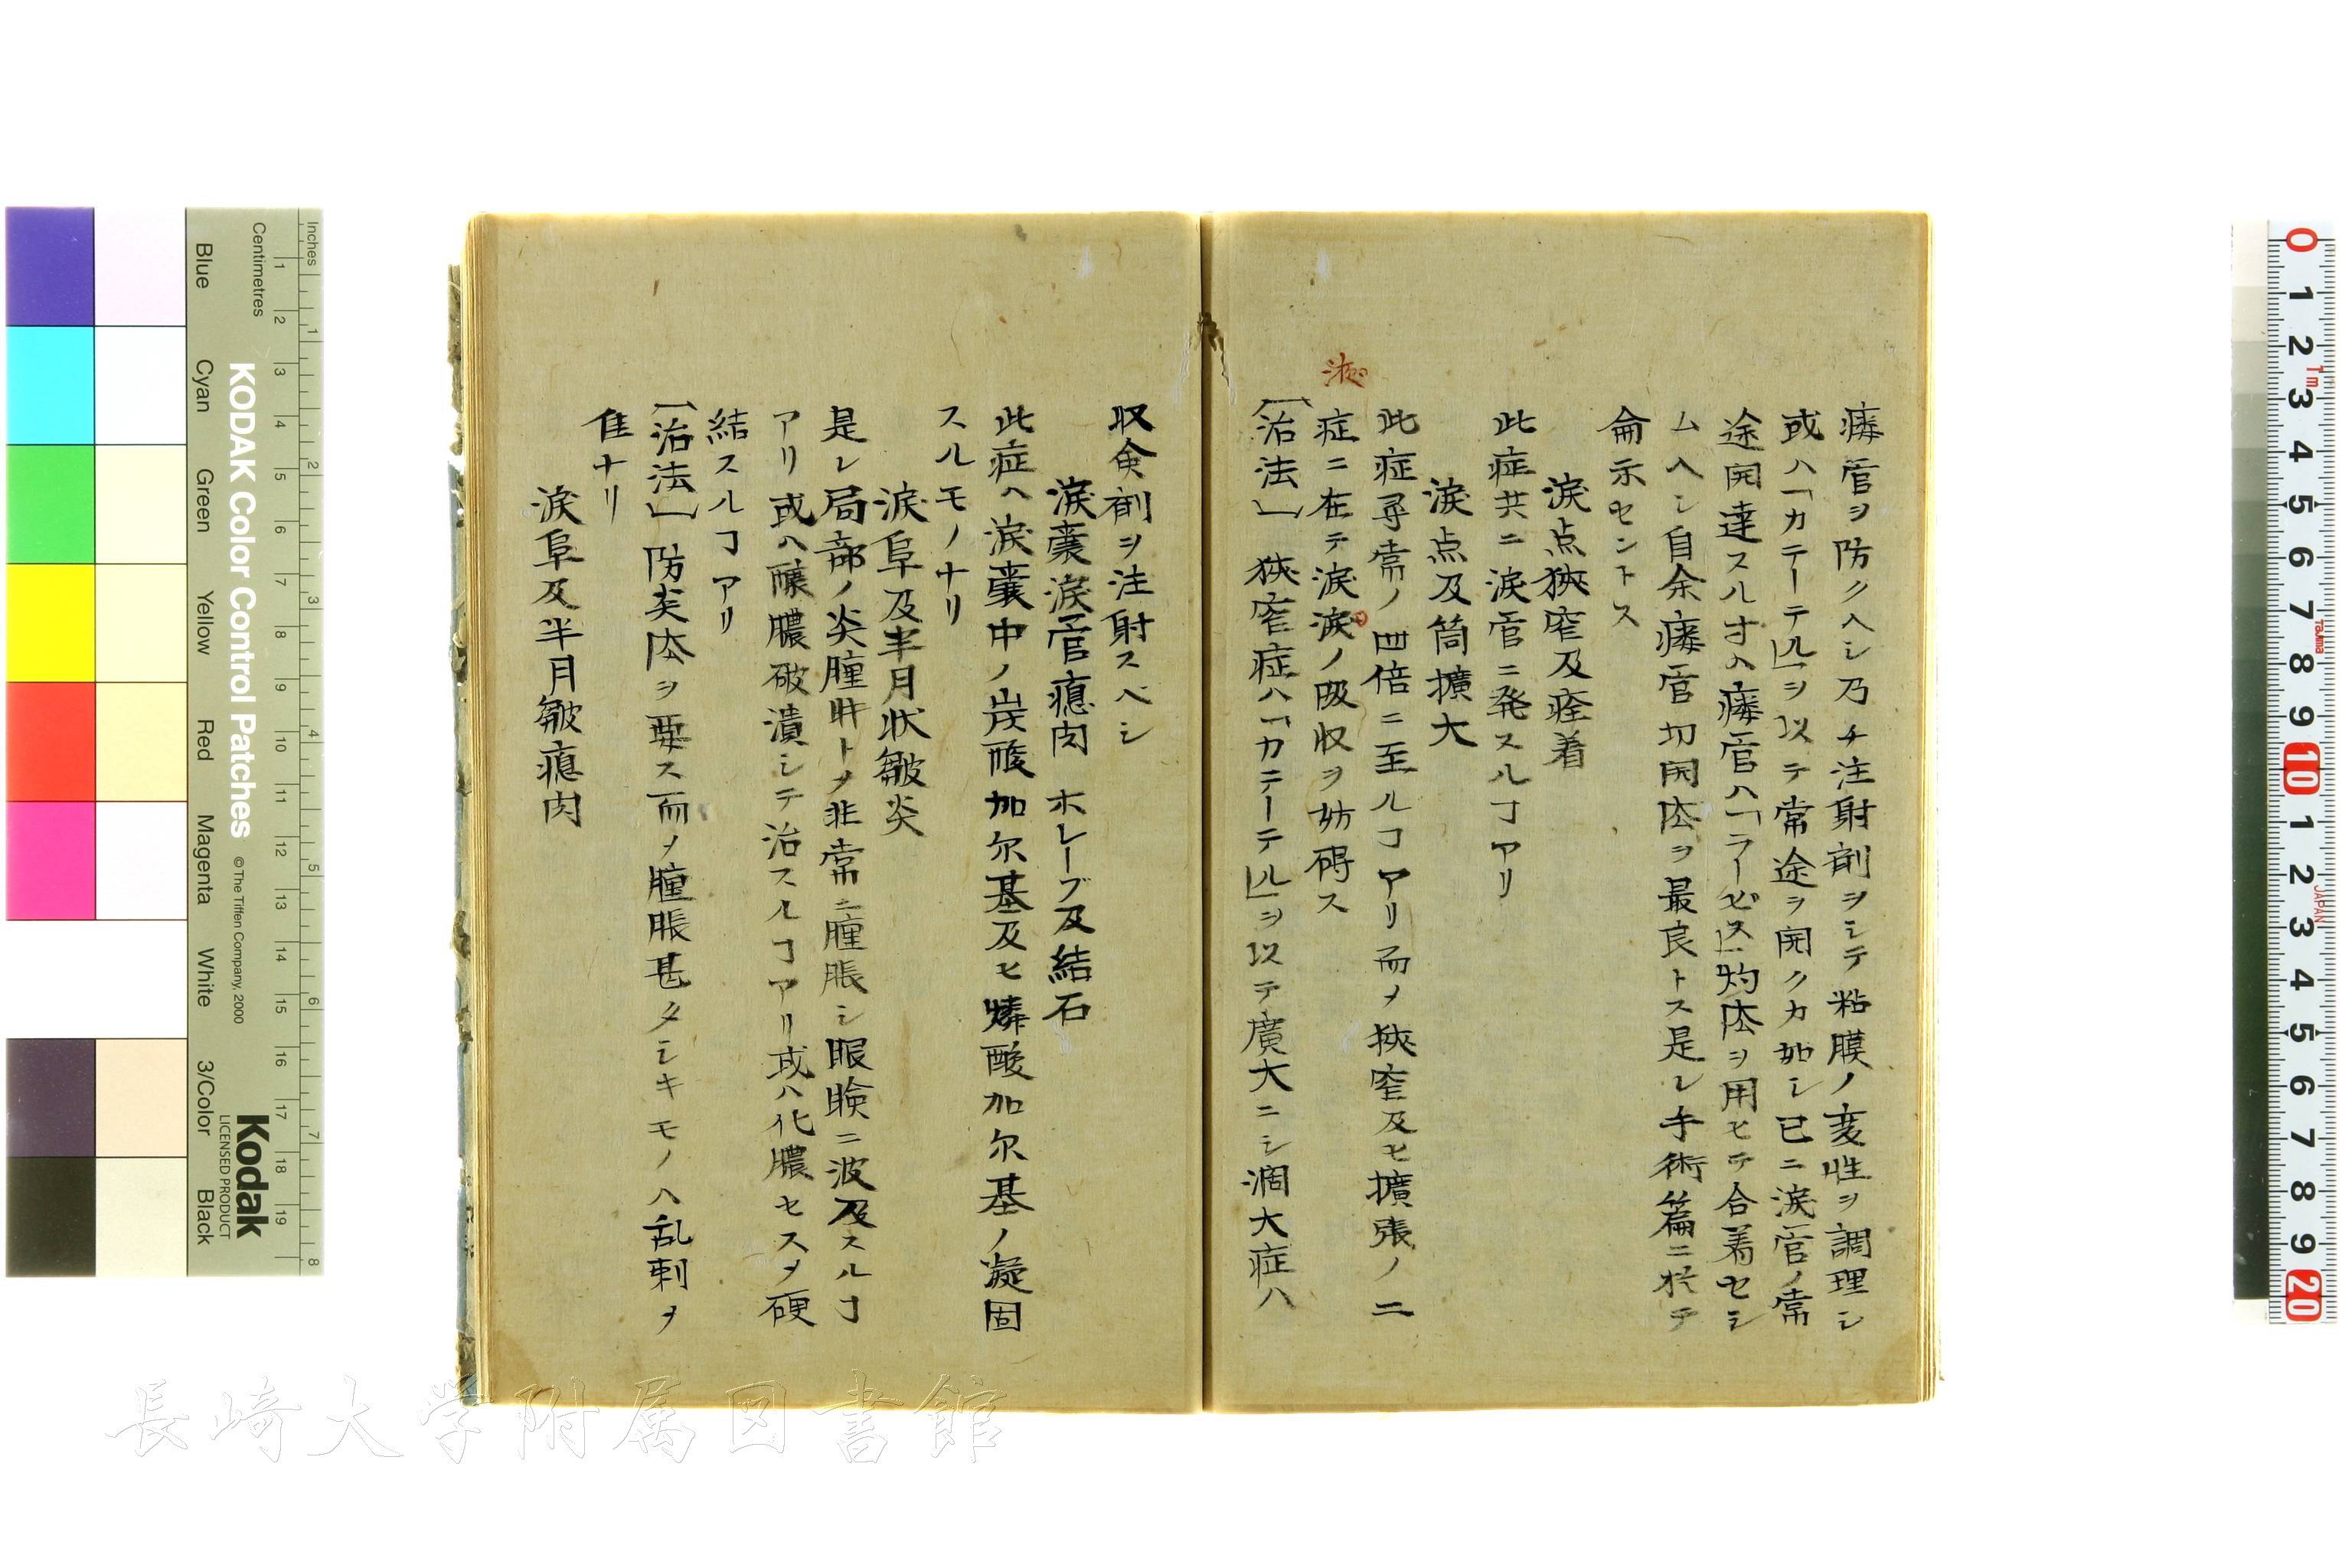 瘻管ヲ防クヘシ乃チ注射剤ヲシテ粘膜ノ変性ヲ調理シ
或ハ「カテーテル」ヲ以テ常途ヲ開クカ如シ已ニ涙管ノ常
途開達スル寸ハ瘻管ハ「ラーピス」灼法ヲ用ヒテ合着セシ
ムヘシ自余瘻管切開法ヲ最良トス是レ手術篇ニ於テ
侖示セントス
涙点狭窄及痊着
此症共ニ涙管ニ発スルヿアリ
涙点及筒擴大
此症尋常ノ四倍ニ至ルヿアリ而メ狭窄及ヒ擴張ノ二
症ニ在テ涙涙ノ吸収ヲ妨碍ス
[治法] 狭窄症ハ「カテーテル」ヲ以テ廣大ニシ濶大症ハ
収㑒剤ヲ注射スベシ
涙嚢涙管瘜肉 ホレープ及結石
此症ヘ涙嚢中ノ炭酸加尓基及ヒ燐酸加尓基ノ凝固
スルモノナリ
涙阜及半月状皺炎
是レ局部ノ炎腫㽵トメ非常ニ腫脹シ眼瞼ニ波及スルヿ
アリ或ハ醸膿破潰シテ治スルヿアリ或ハ化膿セスメ硬
結スルヿアリ
[治法] 防炎法ヲ要ス而メ腫脹甚タシキモノハ乱刺ヲ
佳ナリ
涙阜及半月皺瘜肉
KODAK Color Control Patches
© The Tiffen Company, 2000
Kodak
LICENSED PRODUCT
Inches
Centimetres
Blue
Cyan
Green
Yellow
Red
Magenta
White
3/Color
Black
長崎大学附属図書館